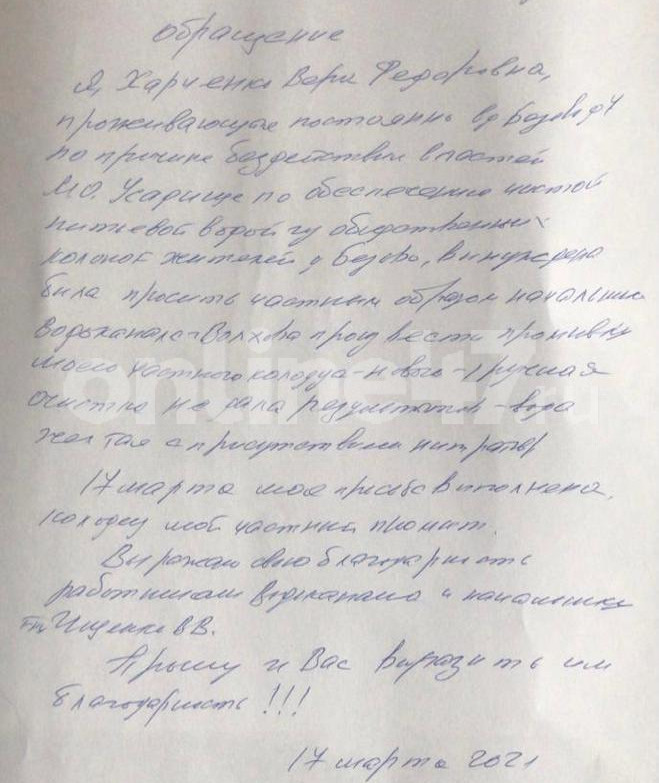 обращение
Я, Харченко Вера Федоровна,
проживающая постоянно в д Безово д 4
по причине бездействия властей
МО. Усадище по обеспечению чистой
питьевой водой из общественных
колонок жителей д Безово, вынуждена
была просить частным образом начальника
Водоканала г Волхова произвести промывку
моего частного колодца - нового - ручная
очистка не дала результатов - вода
желтая с присутствием нитратов
17 марта моя просьба выполнена,
колодец мой частный промыт.
Выражаю свою благодарность
работникам Водоканала и начальнику
Ищенко В В.
Прошу и Вас выразить им
благодарность !!!
17 марта 2021
online47.ru